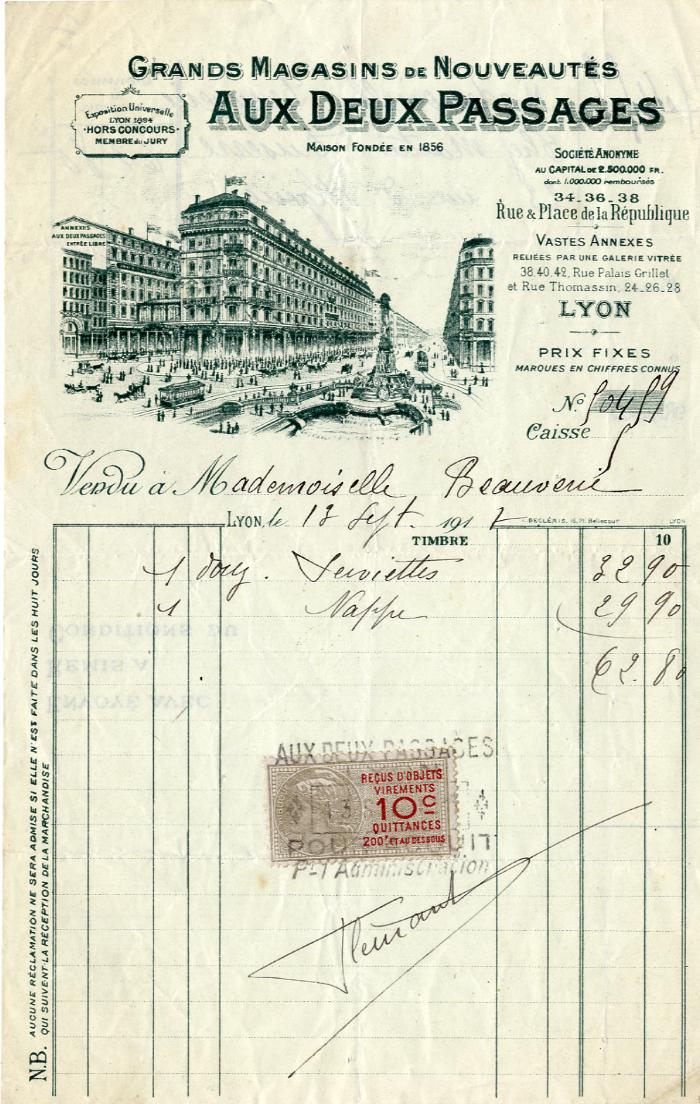 GRANDS MAGASINS DE NOUVEAUTÉS
AUX DEUX PASSAGES
MAISON FONDÉE EN 1856
Exposition Universelle
LYON 1894
HORS CONCOURS
MEMBRE du JURY
SOCIÉTÉ ANONYME
AU CAPITAL DE 2.500.000 FR.
dont 1.000.000 remboursés
34_36_38
Rue & Place de la République
VASTES ANNEXES
RELIÉES PAR UNE GALERIE VITRÉE
38.40.42, Rue Palais Grillet
et Rue Thomassin, 24_26_28
LYON
PRIX FIXES
MARQUÉS EN CHIFFRES CONNUS
ANNEXES
AUX DEUX PASSAGES
ENTRÉE LIBRE
No 50459
Caisse
Vendu à Mademoiselle Beauverie
LYON, le 13 Sept. 1917
DECLÉRIS, 15, Pl. Bellecour LYON
TIMBRE 10
1 douz. Serviettes 32 90
1 Nappe 29 90
62.80
AUX DEUX PASSAGES
REÇUS D'OBJETS
VIREMENTS
10c
QUITTANCES
200f ET AU DESSOUS
Pr l'Administration
N.B. AUCUNE RÉCLAMATION NE SERA ADMISE SI ELLE N'EST FAITE DANS LES HUIT JOURS
QUI SUIVENT LA RÉCEPTION DE LA MARCHANDISE
CONDITIONS DU
REMIS A
ENVOYÉ AVEC